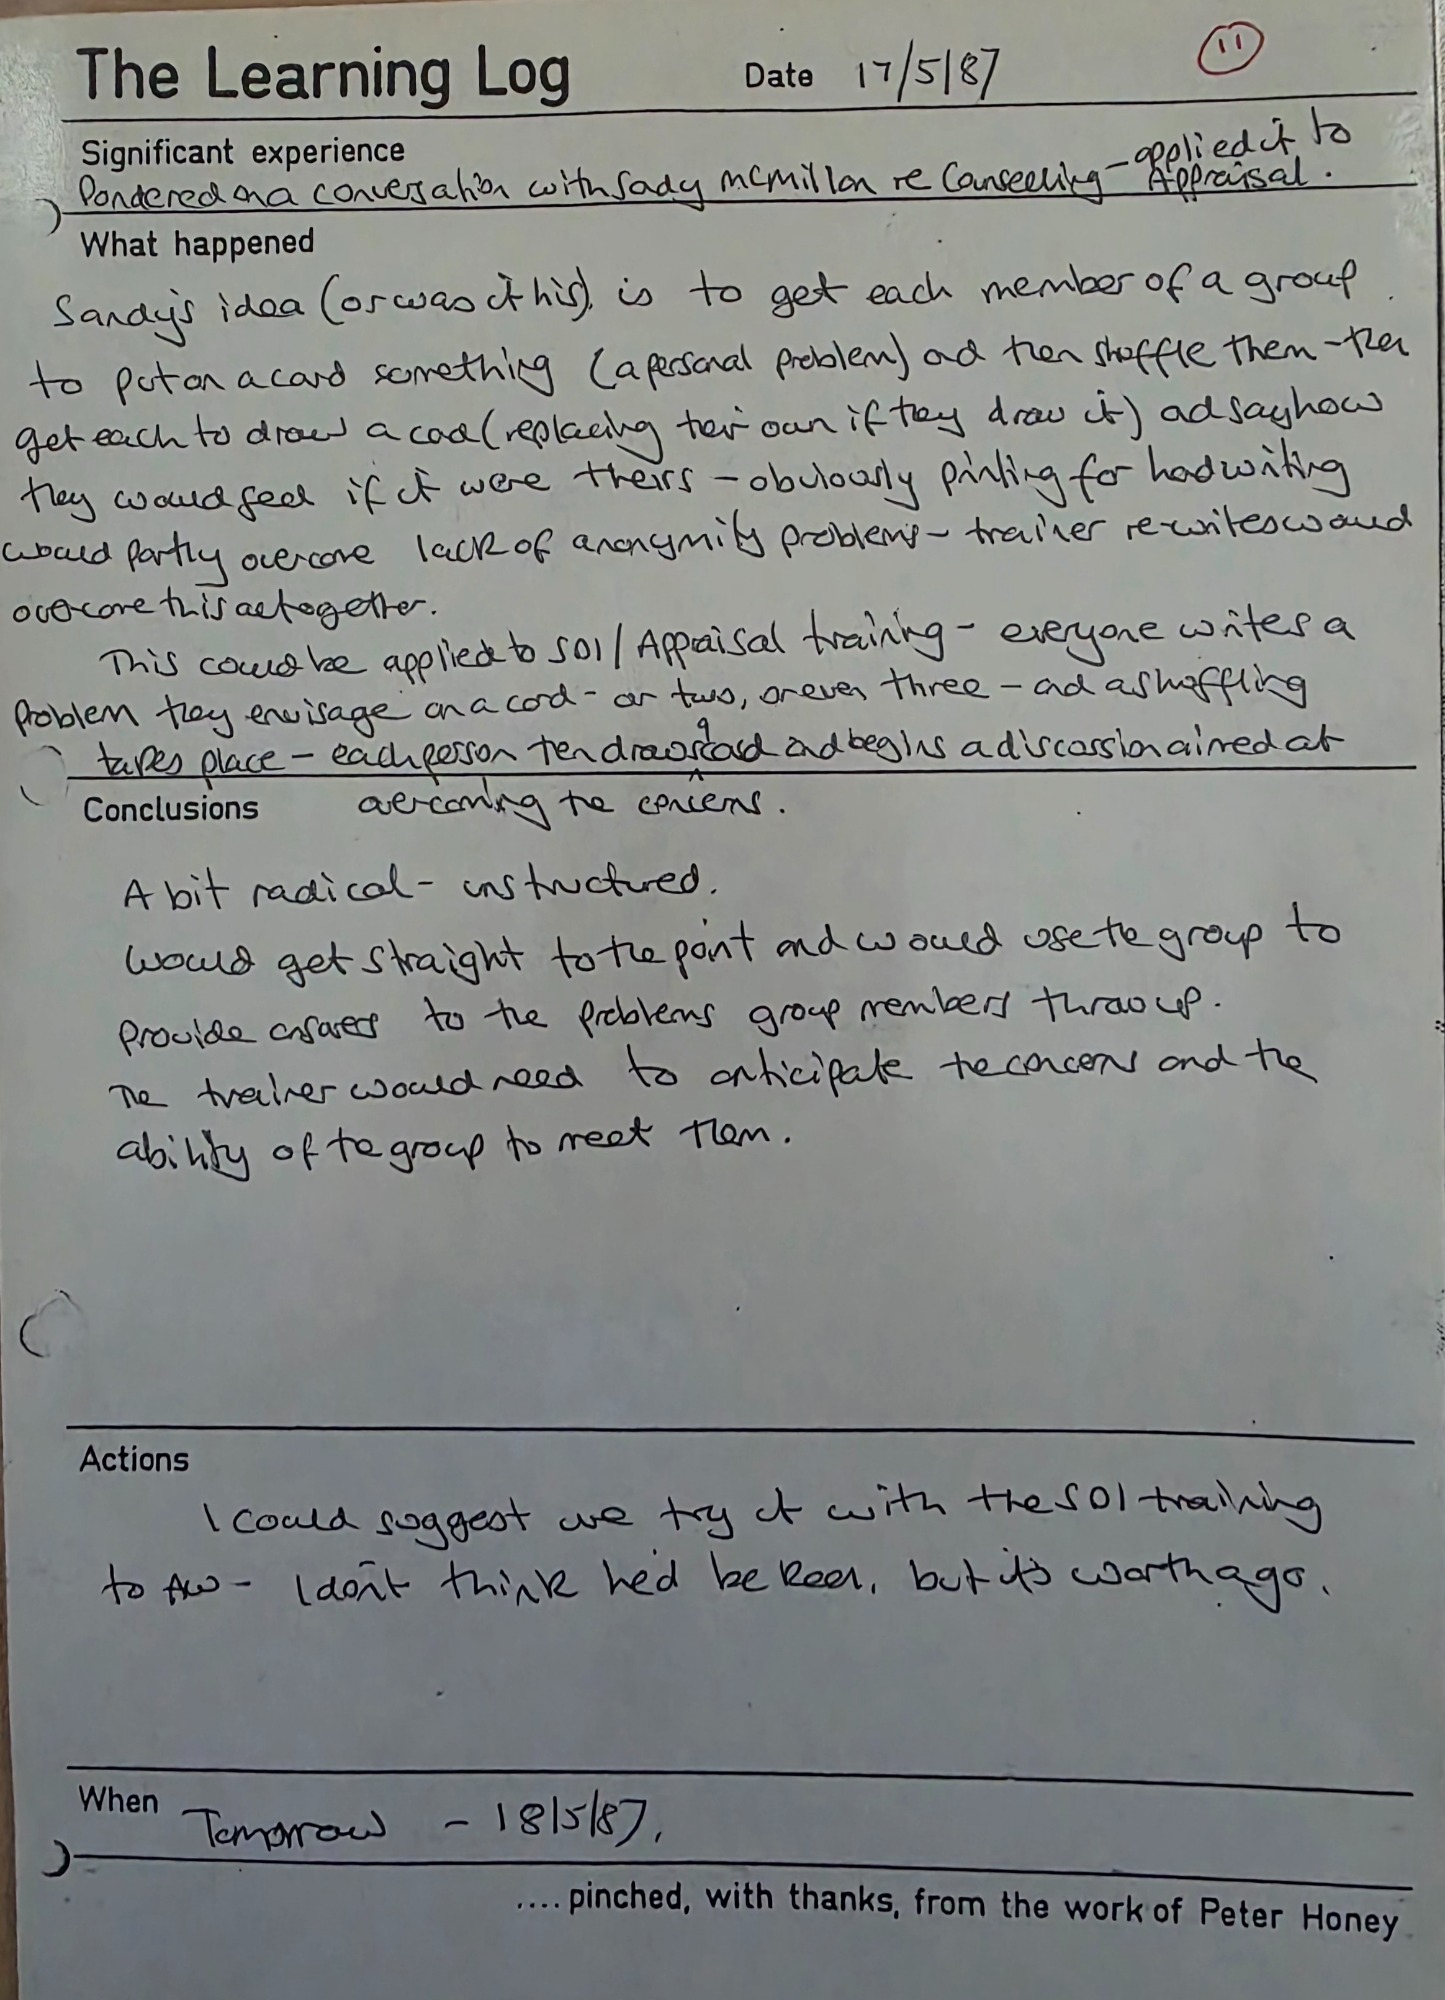 The Learning Log Date 17/5/87 11
Significant experience
Pondered on a conversation with Sandy McMillan re Counselling - applied it to
Appraisal.
What happened
Sandy's idea (or was it his) is to get each member of a group
to put on a card something (a personal problem) and then shuffle them - then
get each to draw a card (replacing their own if they draw it) and say how
they would feel if it were theirs - obviously printing for handwriting
would partly overcome lack of anonymity problems - trainer re-writes would
overcome this altogether.
This could be applied to SOI / Appraisal training - everyone writes a
problem they envisage on a card - or two, or even three - and a shuffling
takes place - each person then draws a card and begins a discussion aimed at
overcoming the concerns.
Conclusions
A bit radical - unstructured.
Would get straight to the point and would use the group to
provide answers to the problems group members throw up.
The trainer would need to anticipate the concerns and the
ability of the group to meet them.
Actions
I could suggest we try it with the SOI training
to AW - I don't think he'd be keen, but it's worth a go.
When Tomorrow - 18/5/87.
.... pinched, with thanks, from the work of Peter Honey